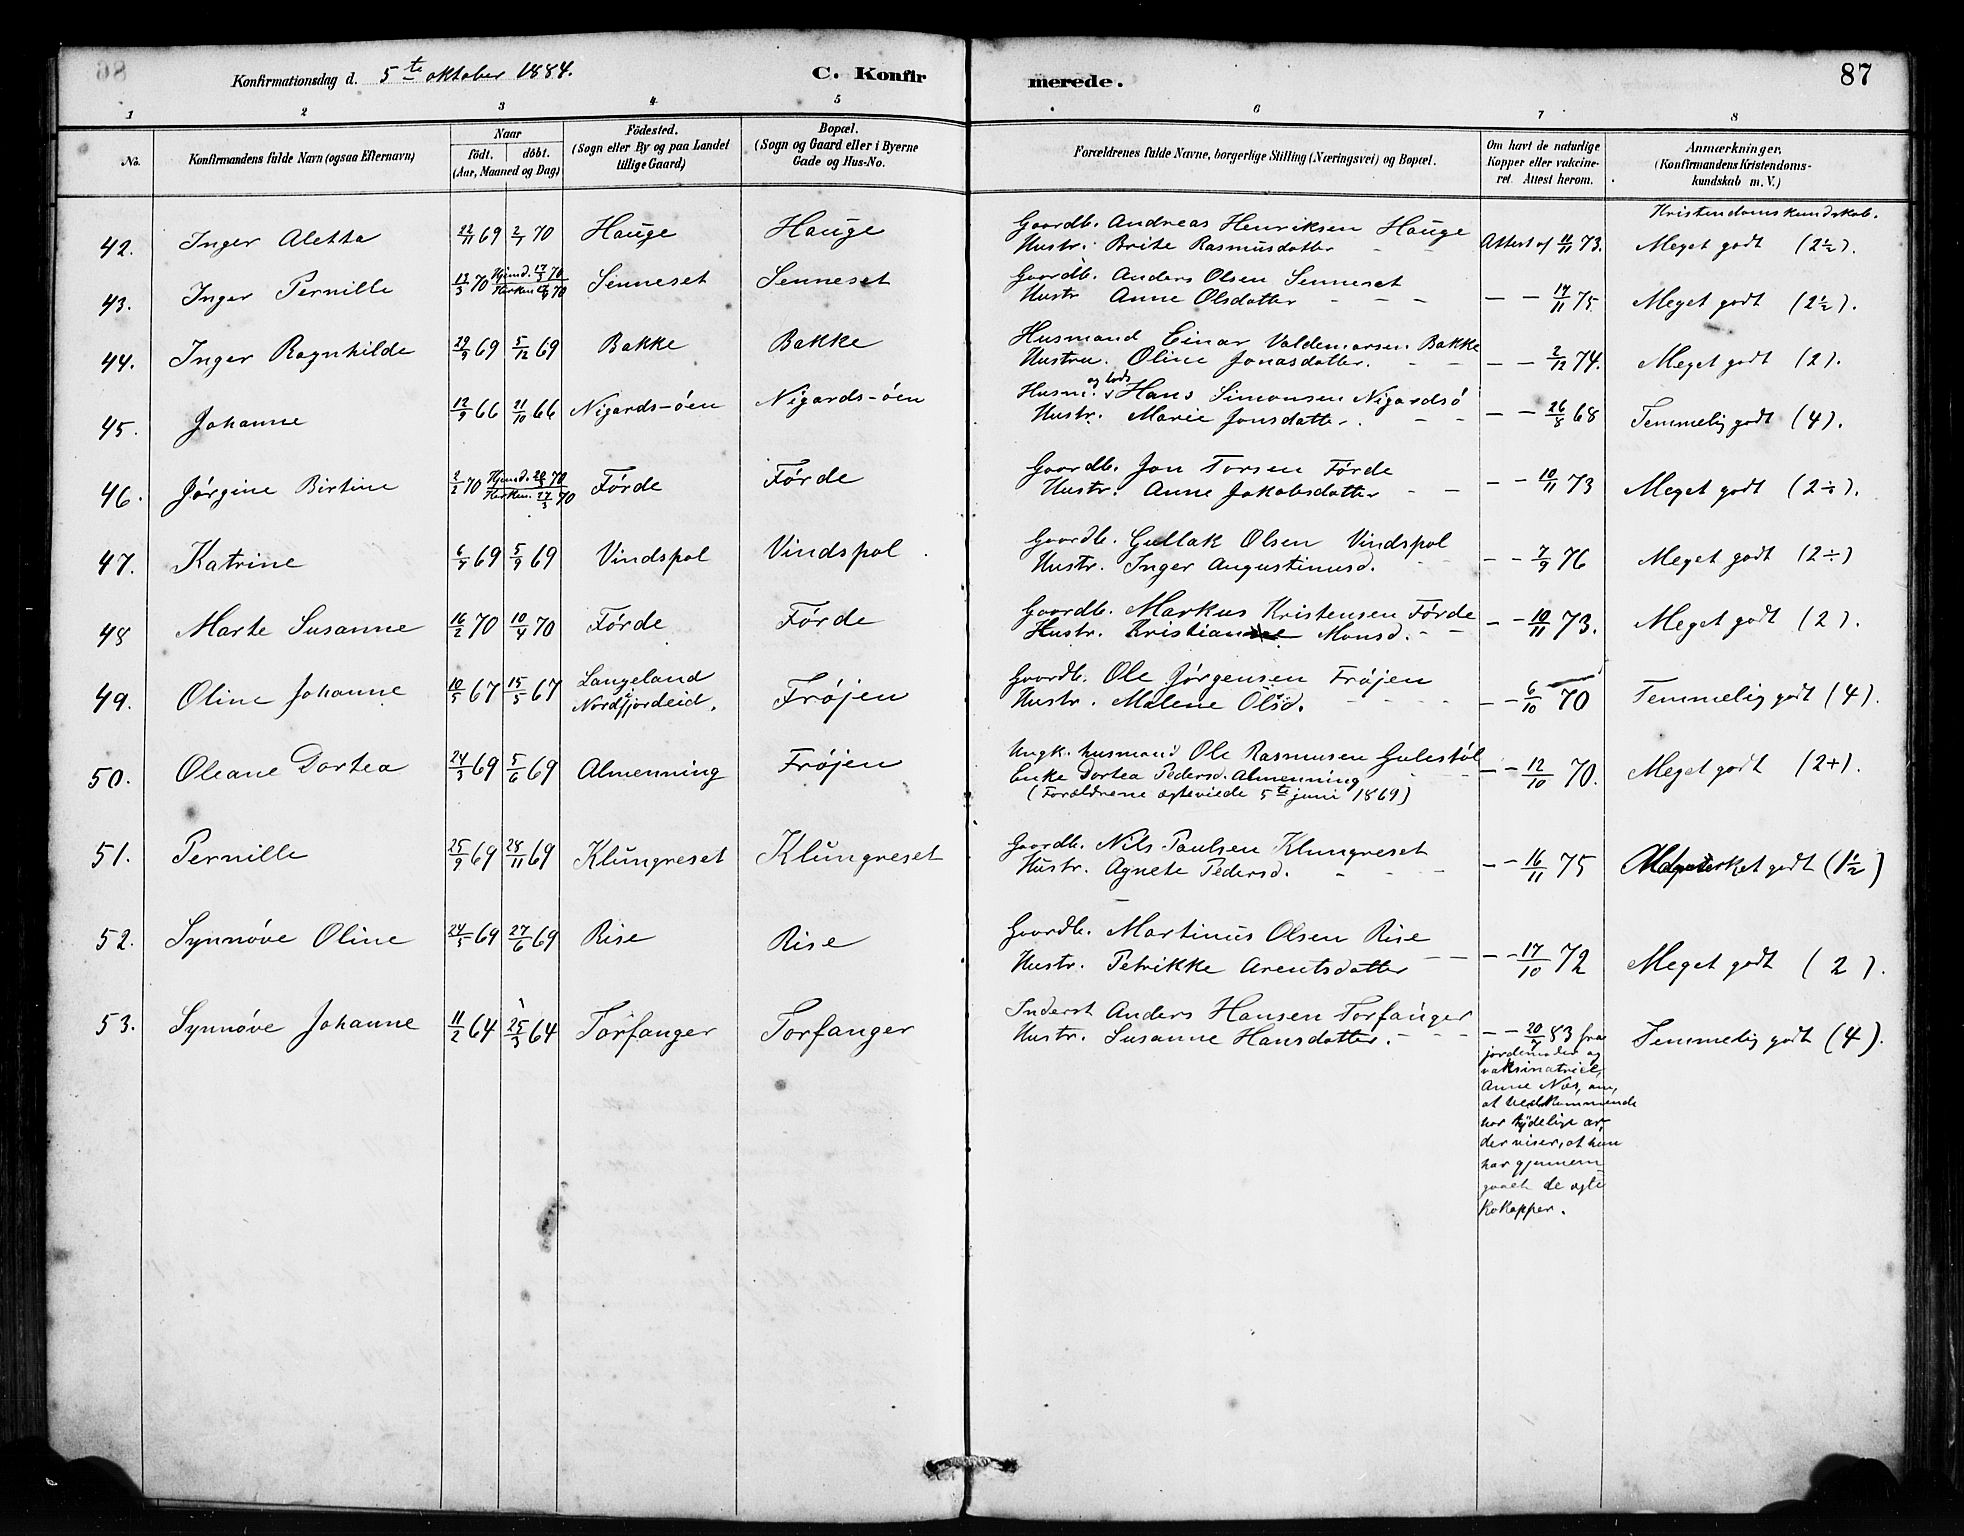 Konfirmationsdag d. 5te oktober 1884.
C. Konfirmerede.
87
1 2 3 4 5 6 7 8
No. Konfirmandens fulde Navn (ogsaa Efternavn) Naar födt. döbt. (Aar, Maaned og Dag) Födested. (Sogn eller By og paa Landet tillige Gaard) Bopæl. (Sogn og Gaard eller i Byerne Gade og Hus-No. Forældrenes fulde Navne, borgerlige Stilling (Næringsvei) og Bopæl. Om havt de naturlige Kopper eller vakcineret. Attest herom. Anmærkninger. (Konfirmandens Kristendomskundskab m. V.)
Kristendomskundskab.
42. Inger Aletta 22/11 69 2/1 70 Hauge Hauge Gaardb. Andreas Henriksen Hauge
Hustr. Brite Rasmusdatter - - Attest af 11/11 73. Meget godt (2½).
43. Inger Pernille 13/3 70 Hjemd. 17/3 70 Senneset Senneset Gaardb. Anders Olsen Senneset
Kirken 70 Hustr Anne Olsdatter - - - - - 14/11 75. Meget godt (2½).
44. Inger Ragnhilde 29/9 69 5/12 69 Bakke Bakke Husmand Einar Valdemarsen Bakke
Hustru. Oline Jonasdatter. - - - - 2/12 74. Meget godt (2).
45. Johanne 12/9 66 21/10 66 Nigards-öen Nigards-öen Husm. og lods Hans Simonsen Nigardsö
Hustr. Marie Jonsdatter. - - - - 26/8 68 Temmelig godt (4).
46. Jørgine Birtine 2/2 70 Hjemd. 70 Førde Førde Gaardb. Jon Torsen Førde
Kirken. 27/3 70 Hustr. Anne Jakobsdatter - - - - 10/11 73 Meget godt (2÷).
47. Katrine 69 5/9 69 Vindspol Vindspol Gaardb. Gullak Olsen Vindspol
Hustr. Inger Augustinusd. - - - - 7/9 76 Meget godt (2÷)
48 Marte Susanne 16/2 70 10/4 70 Førde Førde Gaardb. Markus Kristensen Førde
Hustr. Kristiane Monsd. - - - - 10/11 73. Meget godt (2).
49. Oline Johanne 10/5 67 15/5 67 Langeland i Nordfjordeid. Frøjen Gaardb. Ole Jørgensen Frøjen
Hustr. Malene Olsd. - - - - - - 6/10 70 Temmelig godt (4).
50. Oleane Dortea 24/3 69 5/6 69 Almenning Frøjen Ungk. husmand Ole Rasmusen Gulestöl
Enke Dortea Pedersd. Almenning - - - - 12/10 70. Meget godt (2+).
(Forældrene ægteviede 5te juni 1869)
51. Pernille 25/9 69 28/11 69 Klungreset Klungreset Gaardb. Nils Paulsen Klungreset
Hustr. Agnete Pedersd. - - - - - 16/11 75 godt (1½)
52. Synnøve Oline 24/5 69 27/6 69 Rise Rise Gaardb. Martinus Olsen Rise
Hustr. Petrikke Arentsdatter - - - - 17/10 72 Meget godt (2).
53. Synnøve Johanne 11/2 64 25/3 64 Torfanger Torfanger Inderst Anders Hansen Torfanger
Hustr. Susanne Hansdatter. - - - - - 20/7 83 fra Temmelig godt (4).
jordemoder og
vaksinatrice,
Anne Næs, om,
at vedkommende
har tydelige ar,
der viser, at hun
har gjennem-
gaaet de ægte
kokopper.